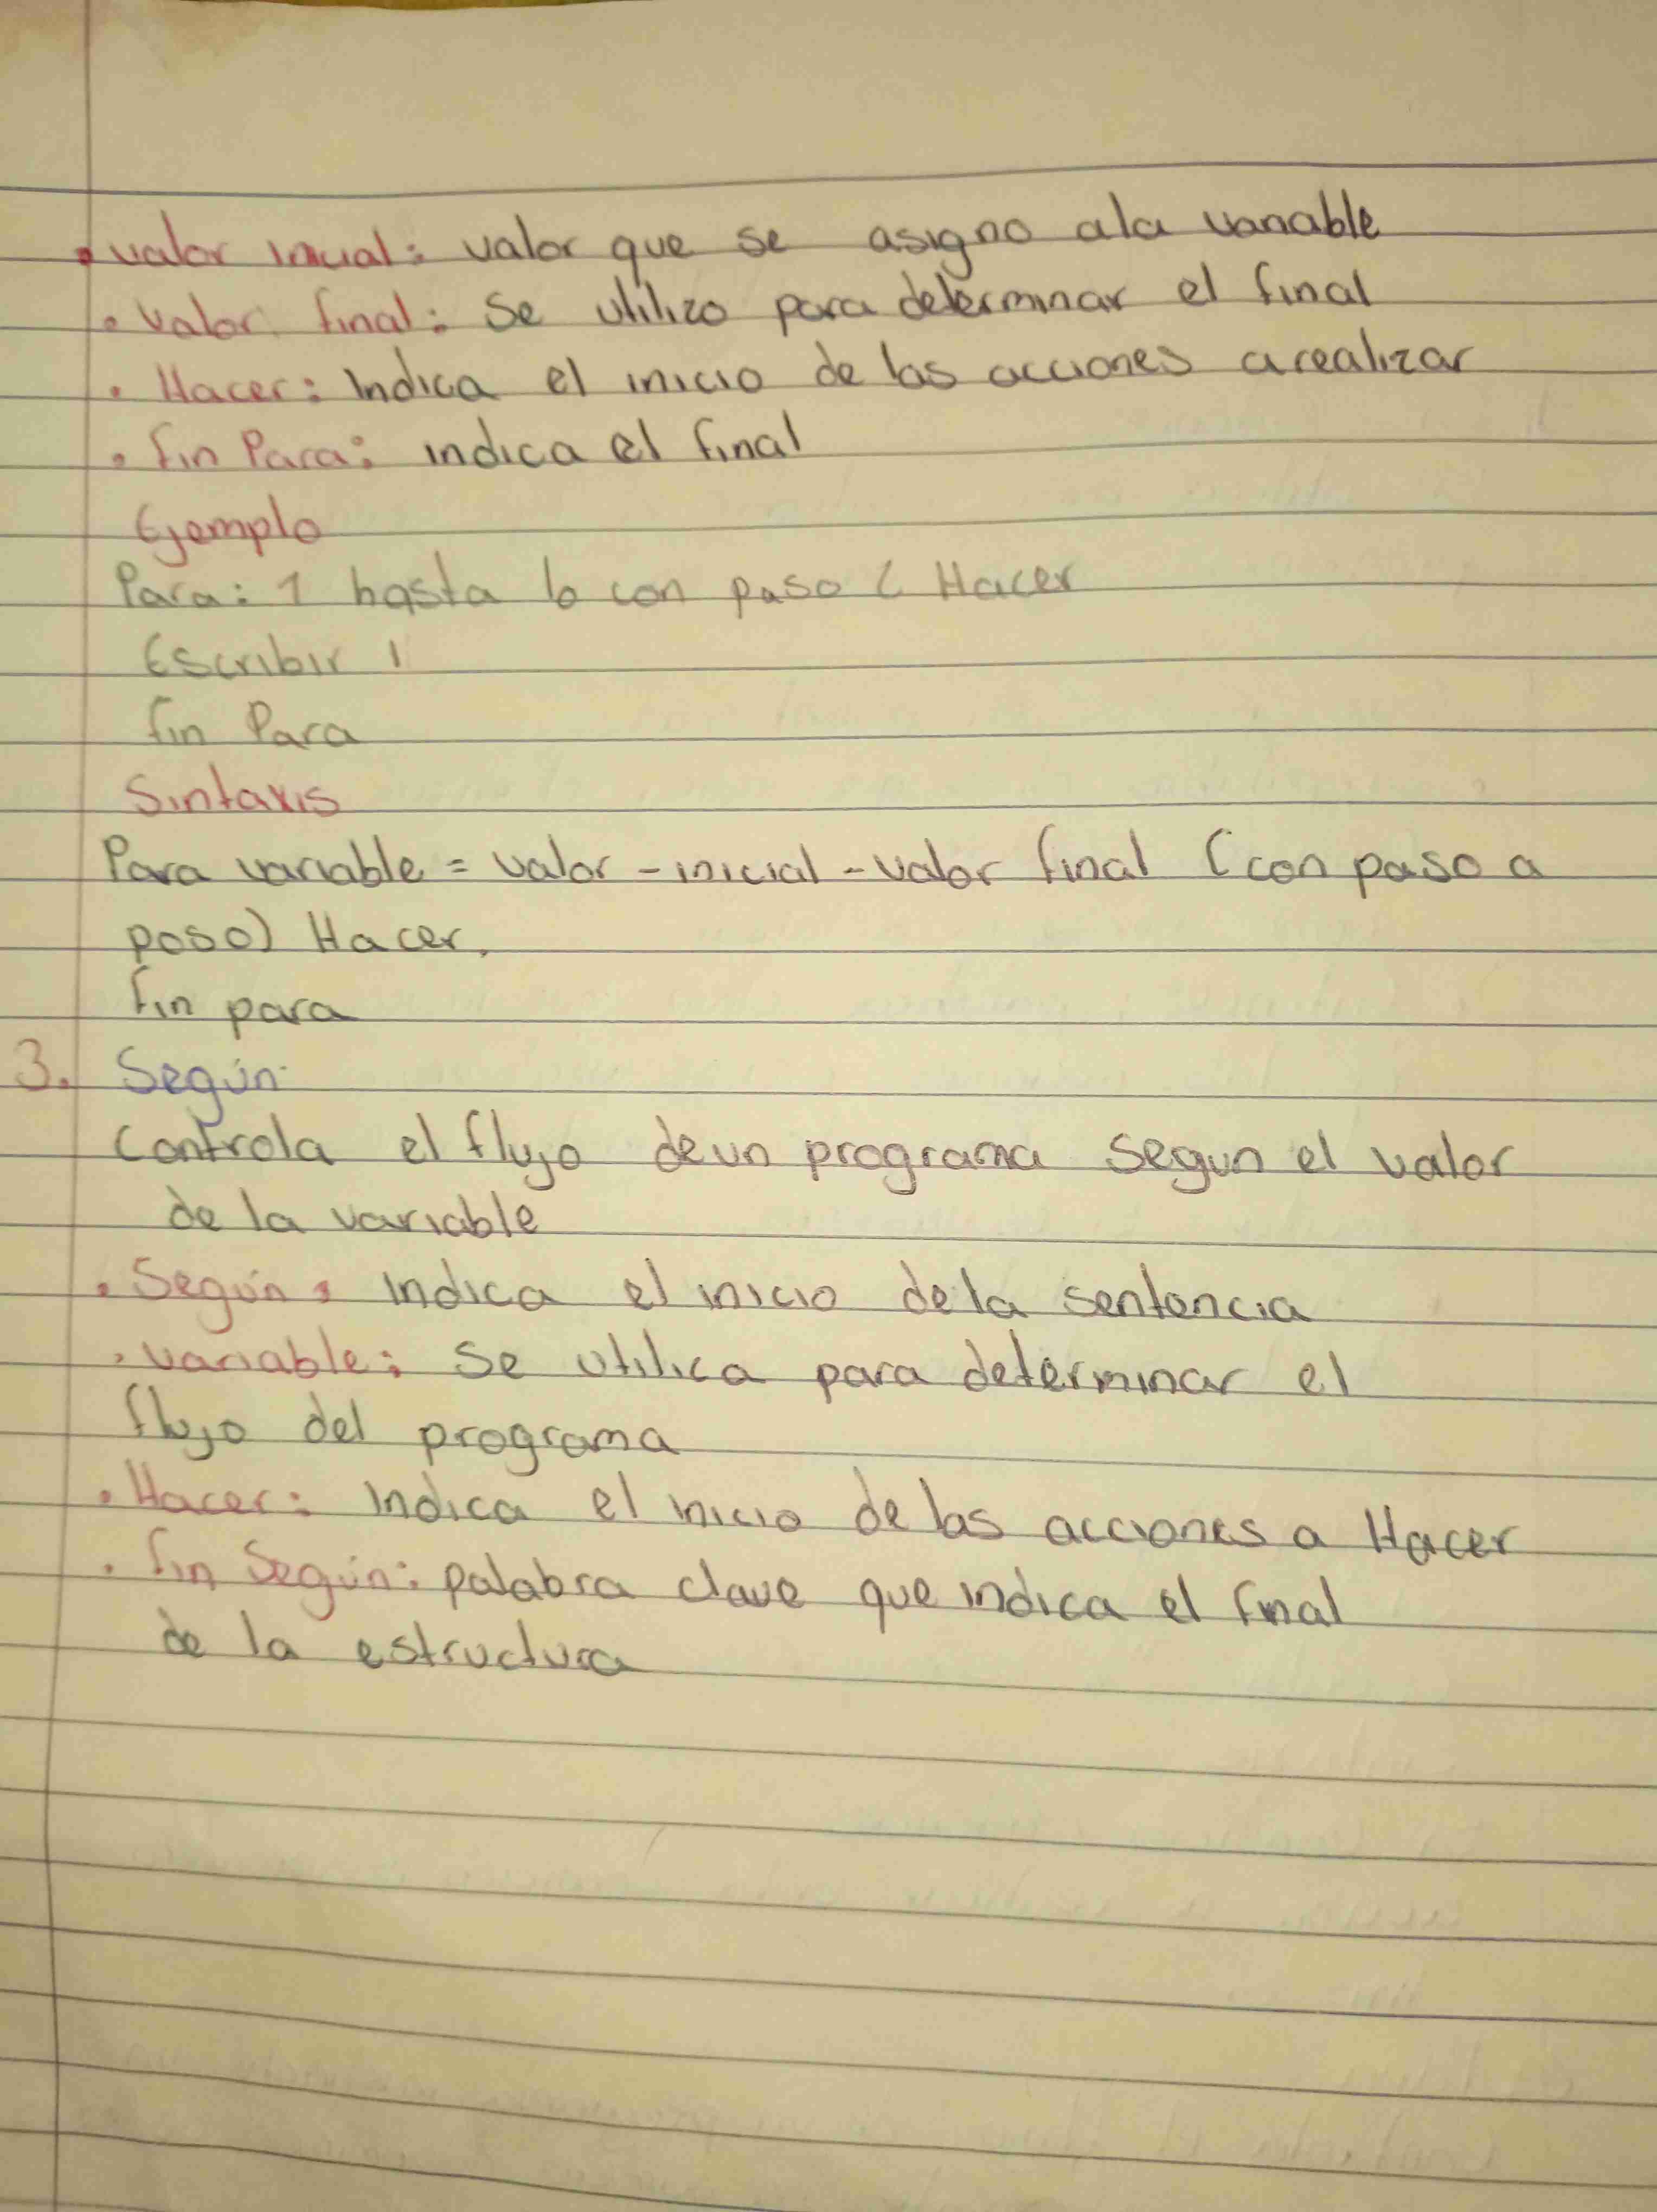 • valor inicial: valor que se asigno ala variable
• valor final: Se utilizo para determinar el final
• Hacer: Indica el inicio de las acciones a realizar
• fin Para: indica el final
Ejemplo
Para: 1 hasta 10 con paso Hacer
Escribir 1
fin Para
Sintaxis
Para variable = valor - inicial - valor final (con paso a
paso) Hacer.
fin para
3. Según
Controla el flujo de un programa segun el valor
de la variable
• Según: Indica el inicio de la sentencia
• variable: Se utilica para determinar el
flujo del programa
• Hacer: Indica el inicio de las acciones a Hacer
• fin Según: palabra clave que indica el final
de la estructura